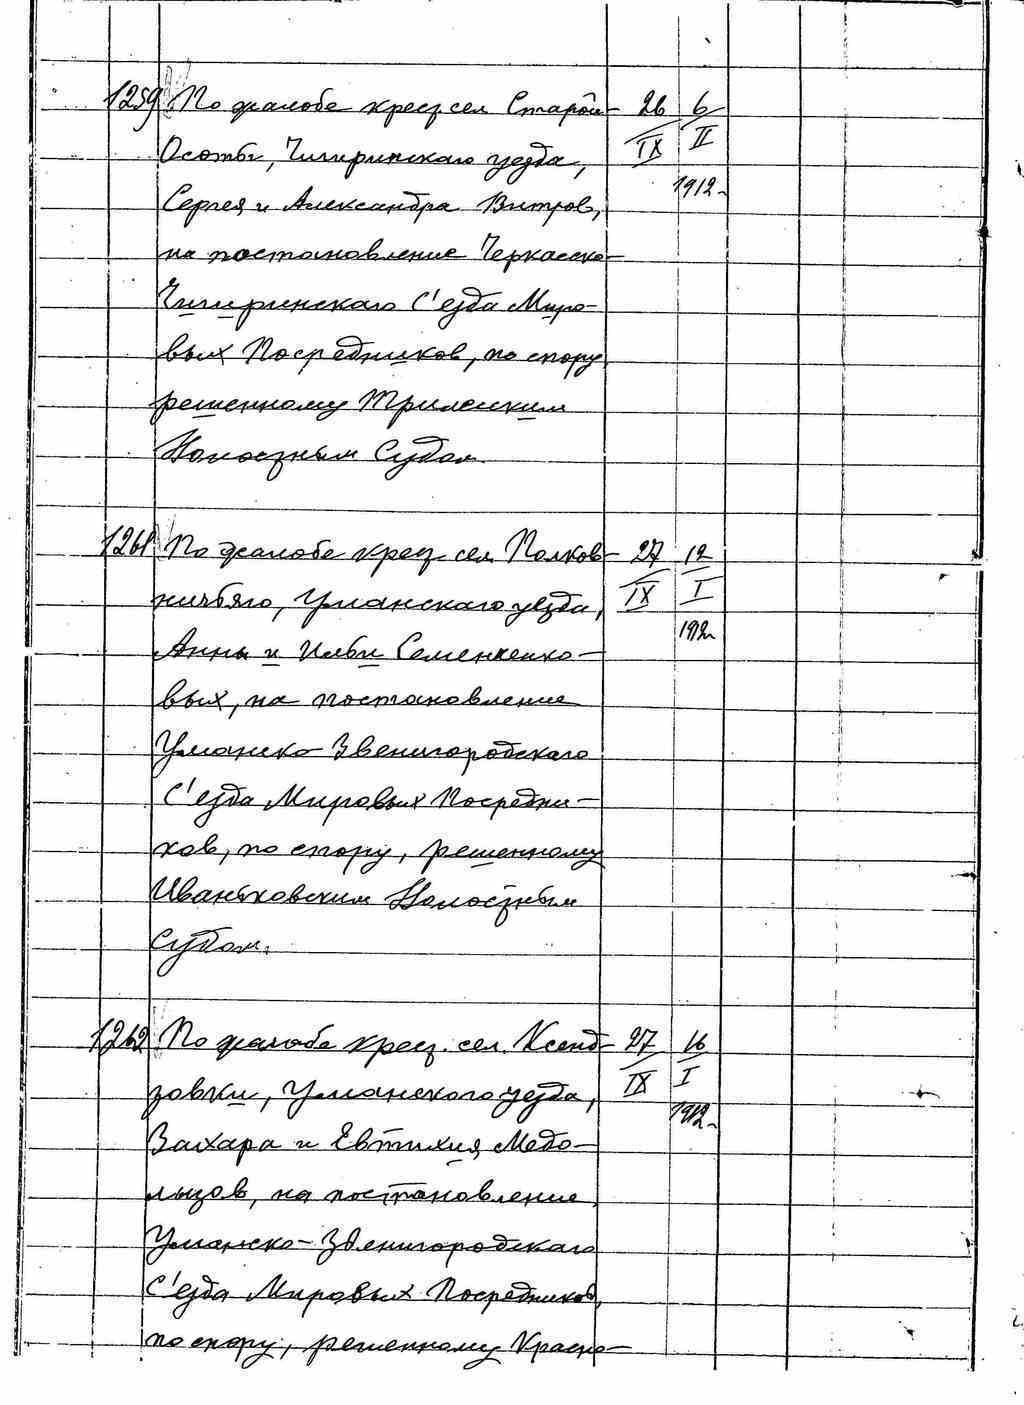 1259 По жалобе крест. сел. Старой 26 6
Осоты, Чигиринскаго уезда, IX II
Сергея и Александра Витров, 1912 г.
на постановление Черкасско-
Чигиринскаго С'езда Миро-
вых Посредников, по спору
решенному Трилесским
Волостным Судом.
1261 По жалобе крест. сел. Полков- 27 12
ничьяго, Уманскаго уезда, IX I
Анны и Ильи Семенченко- 1912 г.
вых, на постановление
Уманско-Звенигородскаго
С'езда Мировых Посредни-
ков, по спору, решенному
Иваньковским Волостным
Судом.
1262 По жалобе крест. сел. Ксенд- 27 16
зовки, Уманскаго уезда, IX I
Захара и Евтихия Медо- 1912 г.
лызов, на постановление
Уманско-Звенигородскаго
С'езда Мировых Посредников,
по спору, решенному Красно-